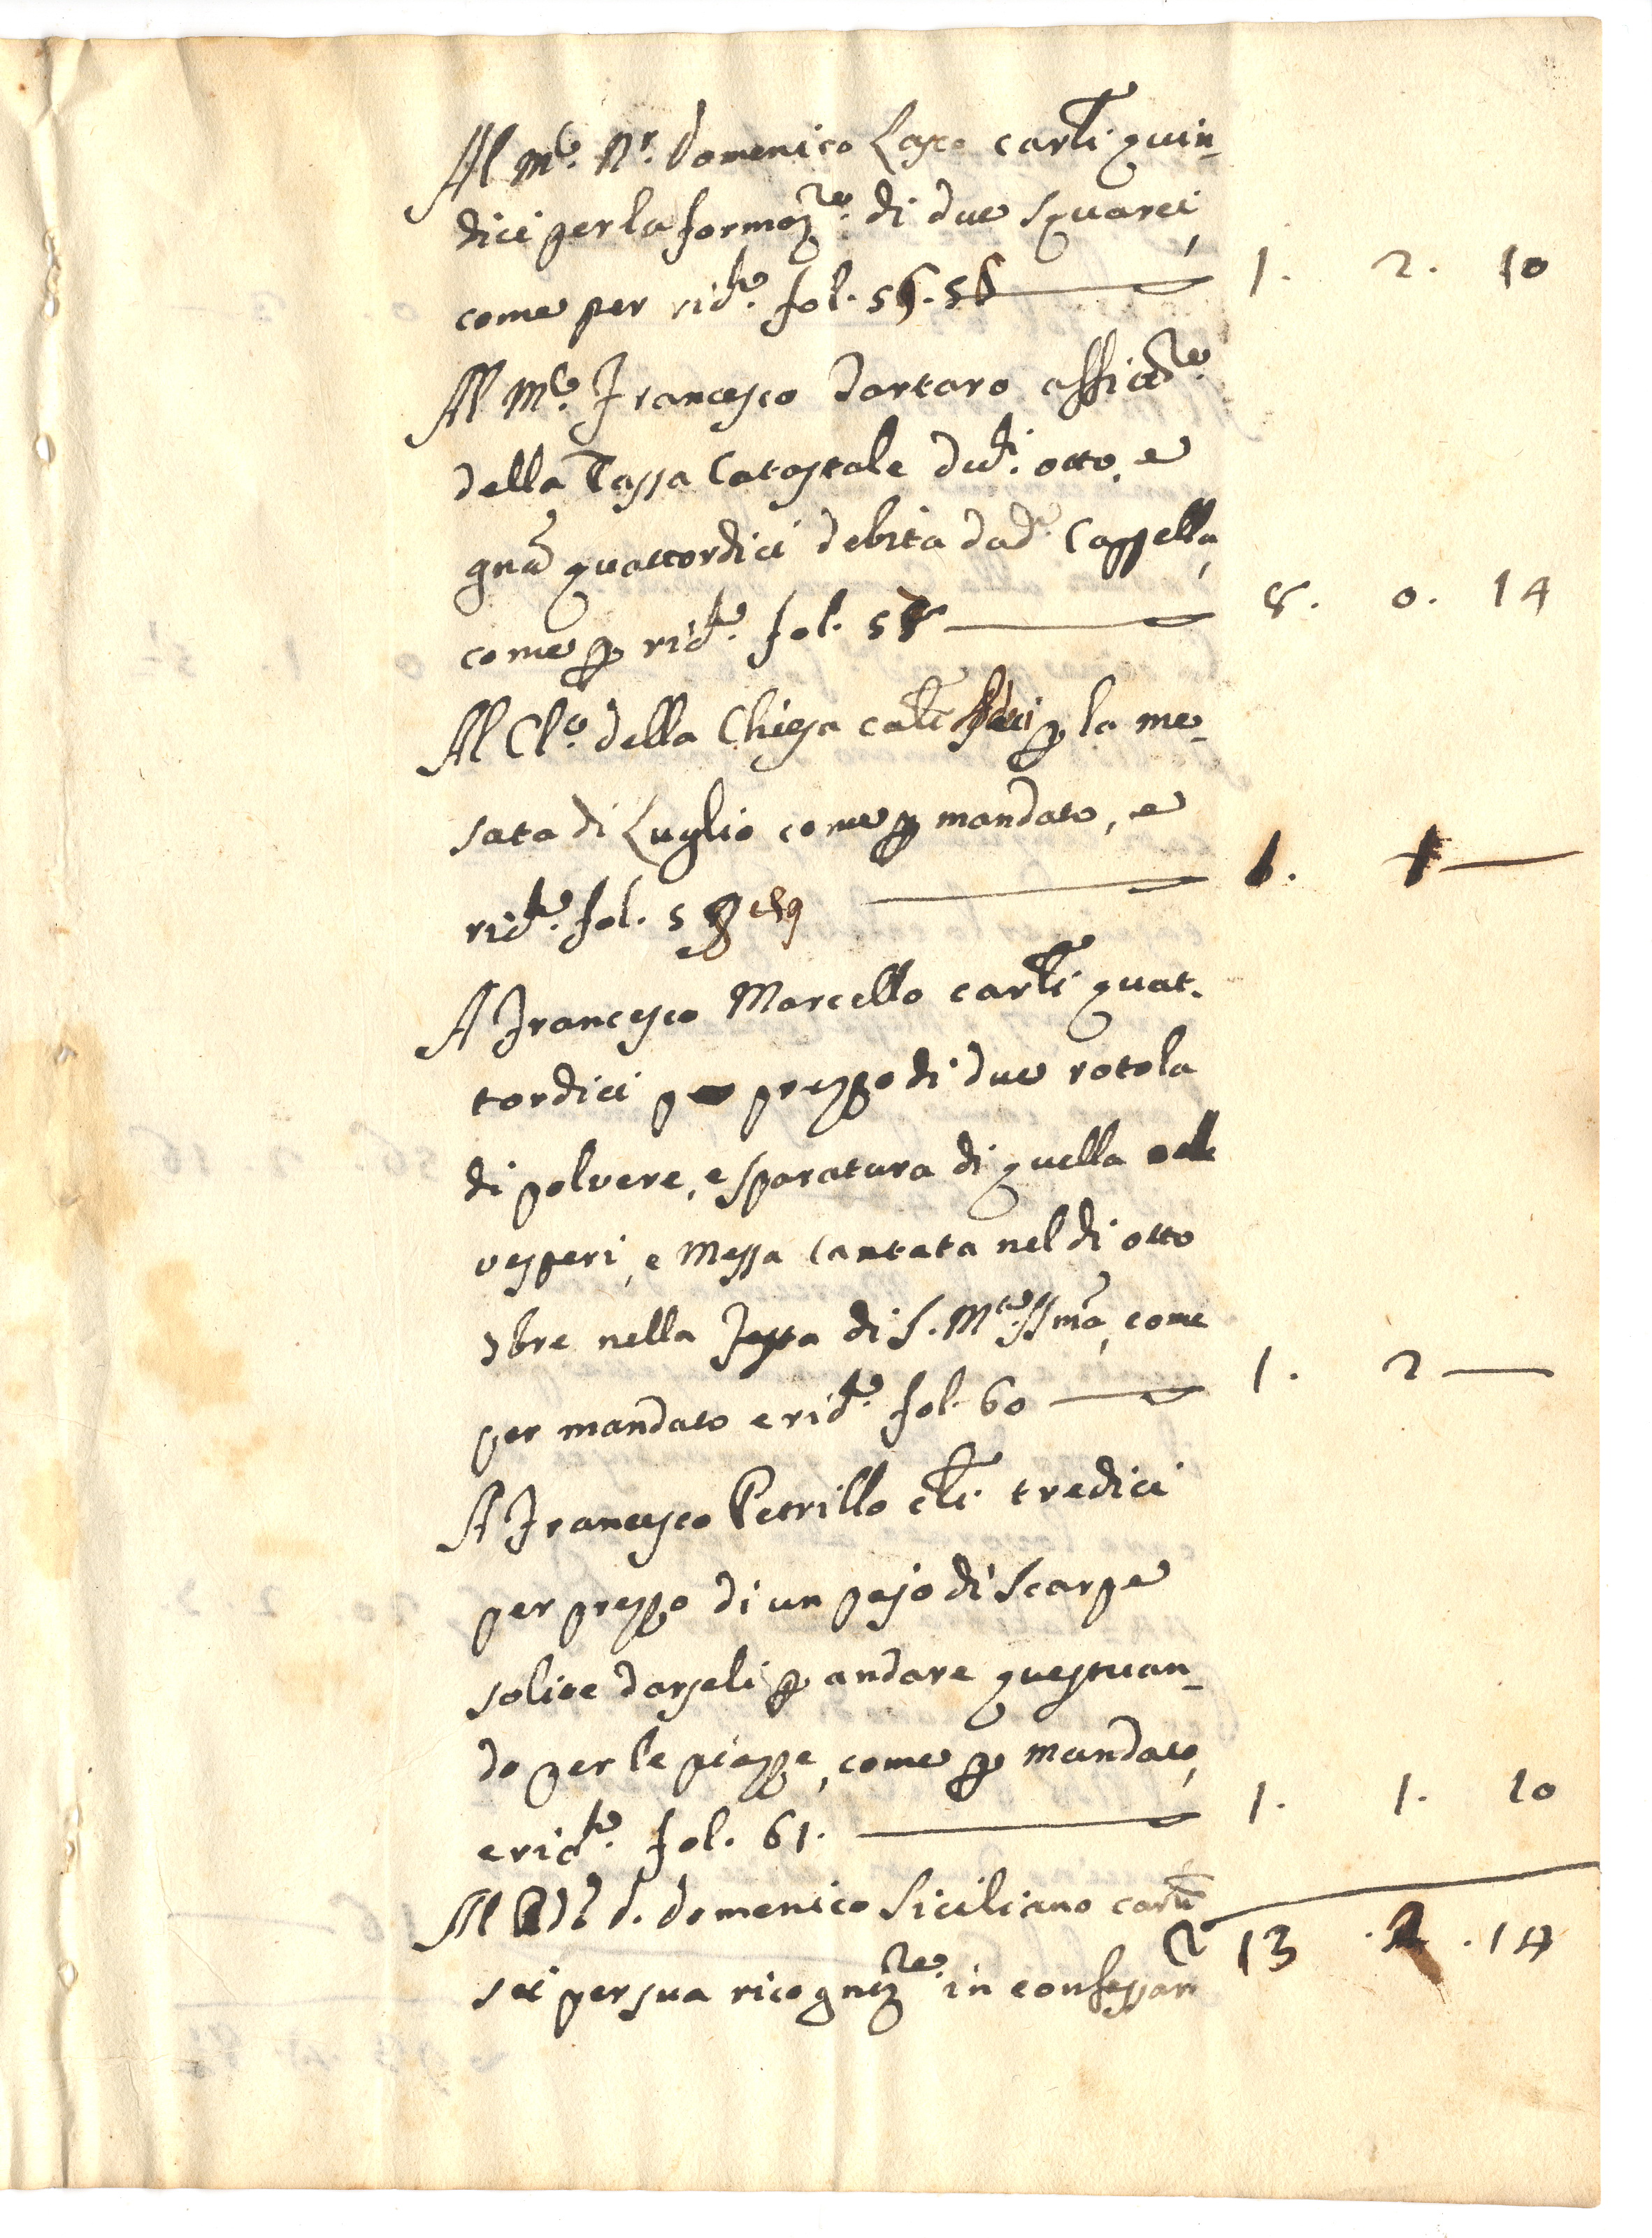 Al M.co N.r Domenico Lapo carli quin-
dici per la formaz.ne di due squarci,
come per ric.ta fol. 56. 58 1. 2. 10
Al M.co Francesco Dartaro affitt.re
della Tassa Catastale duc.ti otto, e
gna quattordici debita da d.a Cappella,
come p ric.ta fol. 58 8. 0. 14
Al Cl.o della Chiesa carli p la me-
sata di Luglio come p mandato, e
ric.ta fol. 58 e 59 1. 1
A Francesco Marcello carli quat-
tordici prezzo di due rotola
di polvere, e sparatura di quella
vesperi, e Messa Cantata nel dì otto
7bre nella Festa di S. M.a SSma, come
per mandato e ric.ta fol. 60 1. 2
A Francesco Petrillo cli tredici
per prezzo di un pajo di scarpe
solite darseli p andare questuan-
do per le piazze, come p mandato,
e ric.ta fol. 61. 1. 1. 10
Al D. Domenico Siciliano carli
sei per sua ricogniz.ne in confessar
13 . 2 . 14